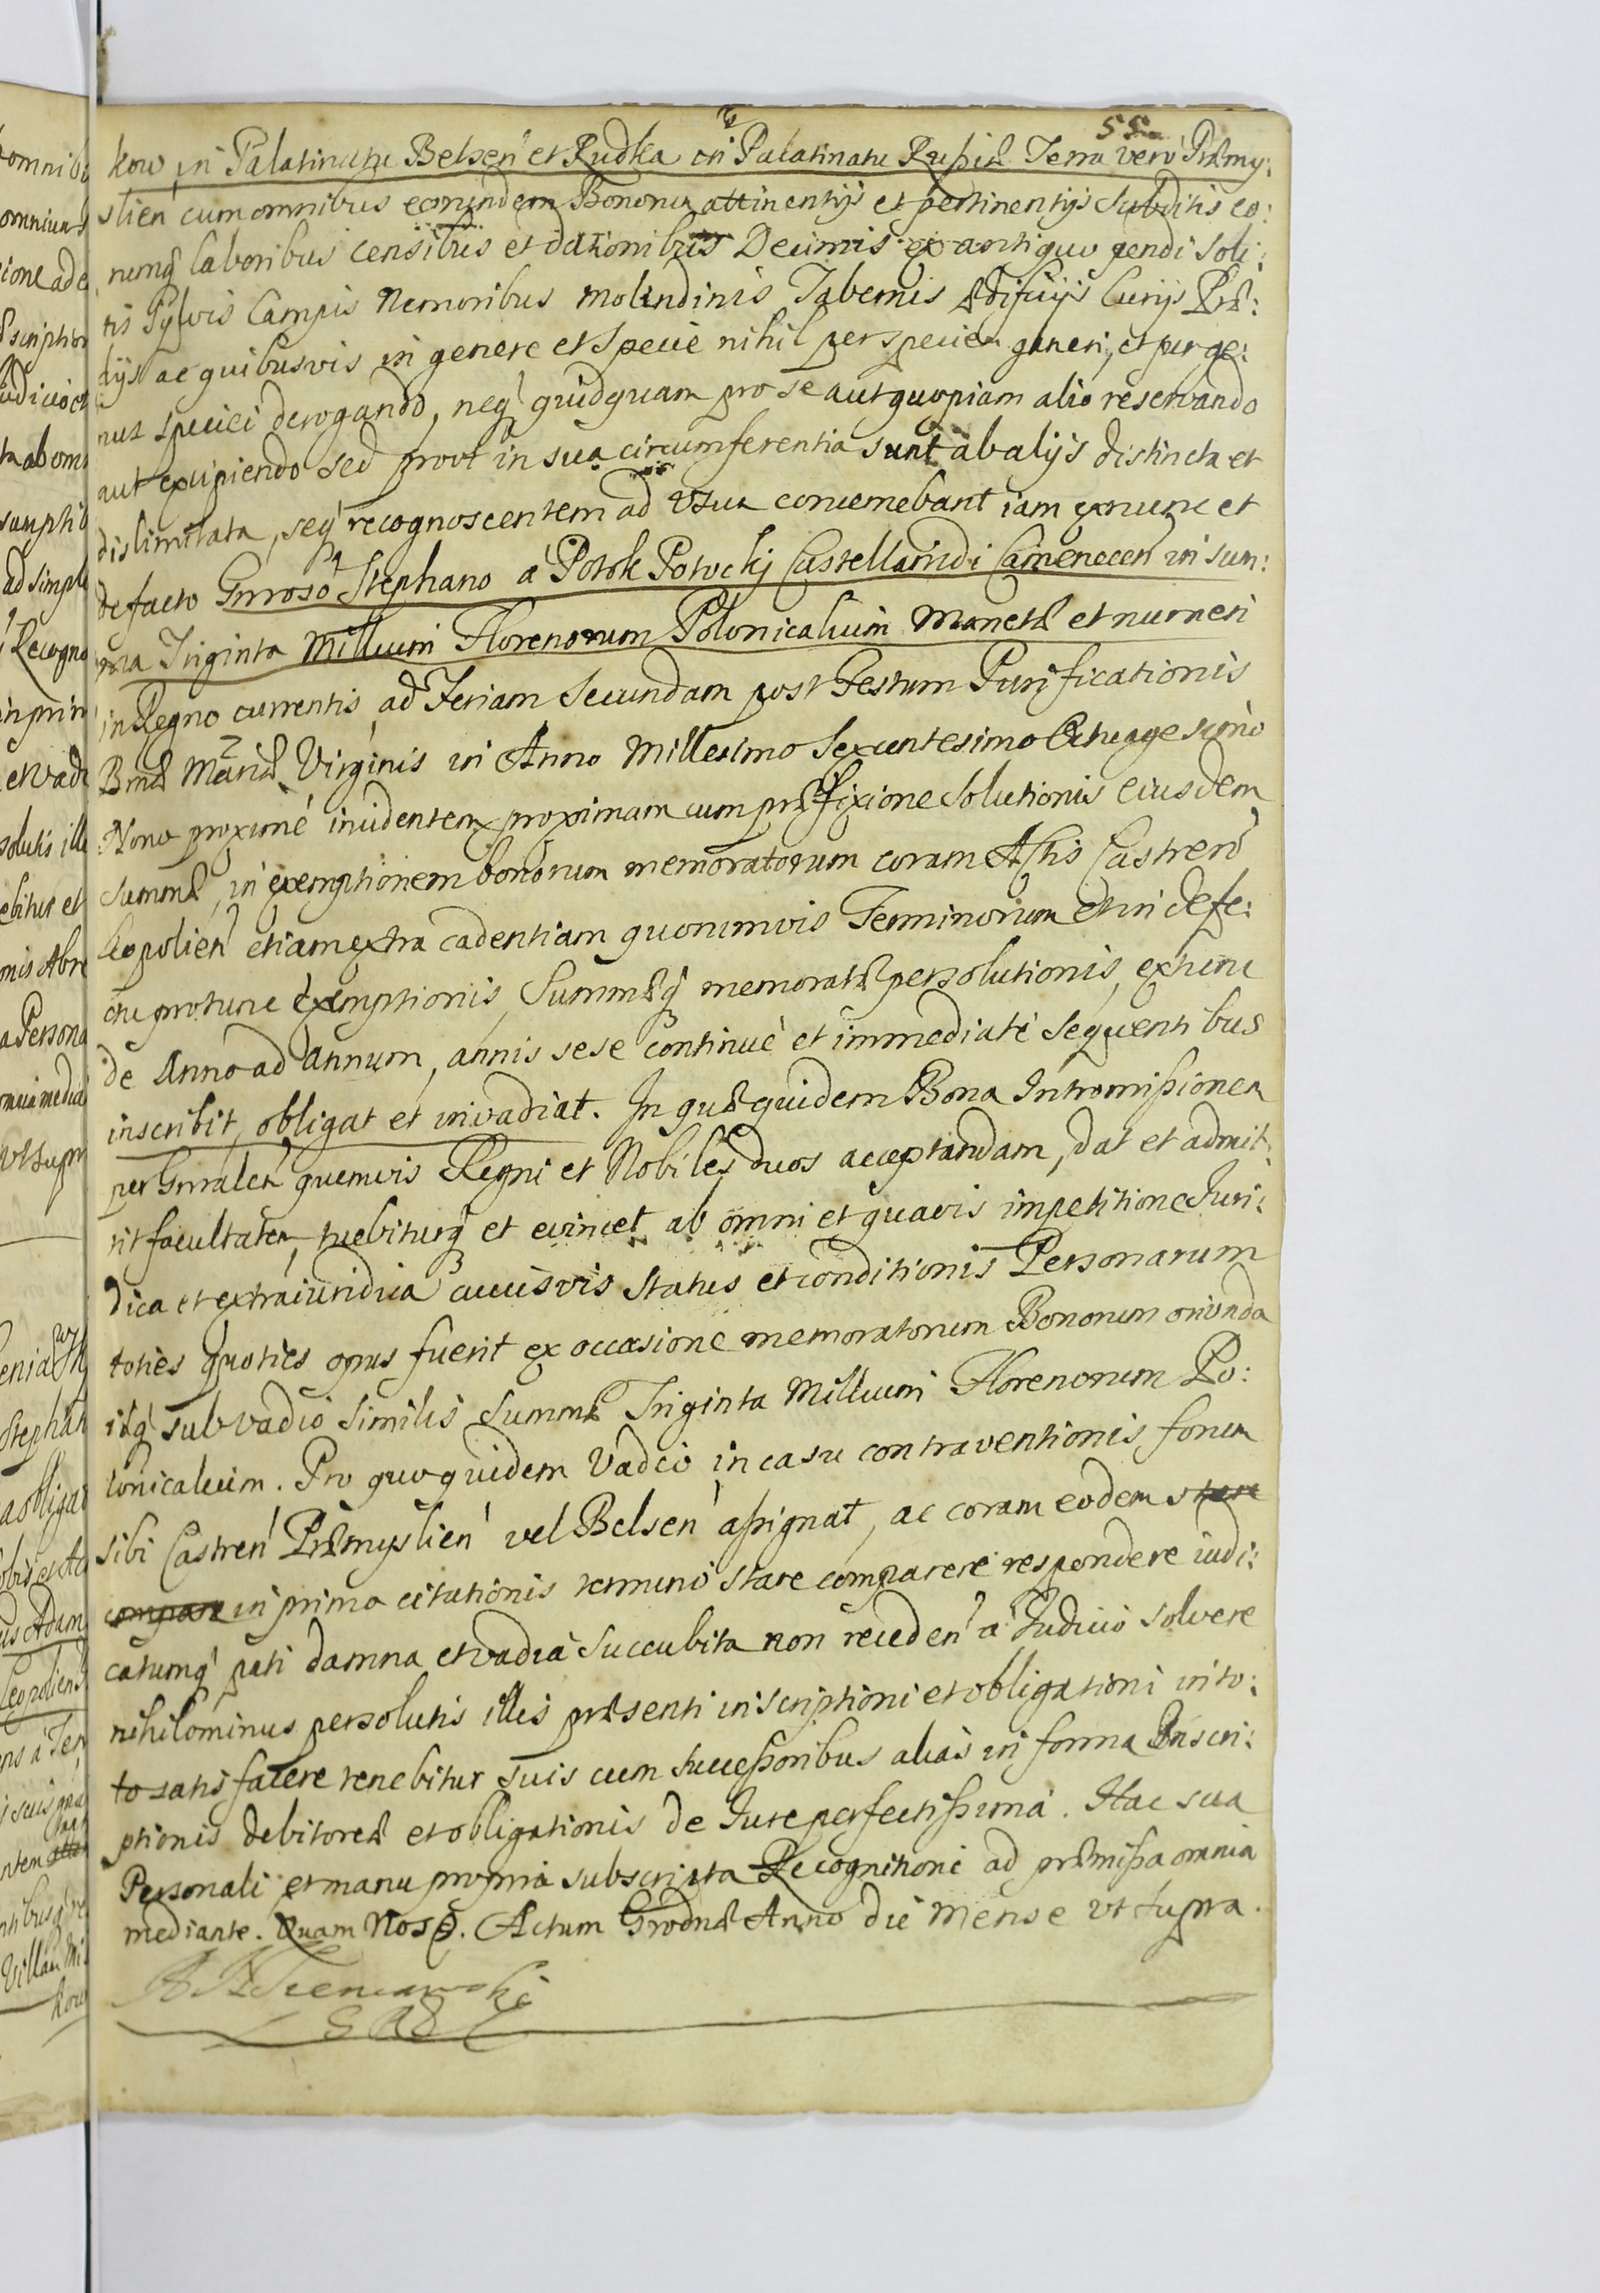 55
kow in Palatinatu Belsen et Rudka in Palatinatu Russiæ Terra vero Præmy:
slien cum omnibus eorundem Bonorum attinentijs et pertinentijs Subditis eo:
rumq laboribus censibus et dationibus Decimis ex antiquo pendi soli:
tis Sylvis Campis Nemoribus Molendinis Tabernis Ædificijs Curijs Præ:
dijs ac quibusvis in genere et specie nihil per speciem generi, et per ge:
nus speciei derogando, neq quidquam pro se aut quopiam alio reservando
aut excipiendo sed prout in sua circumferentia sunt ab alijs distincta et
dislimitata, seq recognoscentem ad usum concernebant iam exnunc et
de facto Gnroso Stephano a Potok Potocki Castellanidi Camenecen in sum:
ma Triginta Millium Florenorum Polonicalium Monetæ et numeri
in Regno currentis ad Feriam Secundam post Festum Purificationis
Bmæ Mariæ Virginis in Anno Millesimo Sexcentesimo Octuagesimo
Nono proxime incidentem proximam cum præfixione solutionis eiusdem
summæ, in exemptionem bonorum memoratorum coram Actis Castren
Leopolien etiam extra cadentiam quorumvis Terminorum et in defe:
ctu protunc exemptionis, Summæq memoratæ persolutionis, extunc
de Anno ad Annum, annis sese continuè et immediatè sequentibus
inscribit, obligat et invadiat. In quæ quidem Bona Intromissionem
per Gnralem quemvis Regni et Nobiles duos acceptandam, dat et admit:
tit facultatem, tuebiturq et evincet ab omni et quavis impetitione Juri:
dica et extraiuridica cuiusvis status et conditionis Personarum
toties quoties opus fuerit ex occasione memoratorum Bonorum oriunda
idq sub vadio similis summæ Triginta Millium Florenorum Po:
lonicalium. Pro quo quidem Vadio in casu contraventionis forum
sibi Castren Præmyslien vel Belsen assignat, ac coram eodem stare
compare in primo citationis termino stare comparere respondere iudi:
catumq pati damna et vadia succubita non receden a Judicio solvere
nihilominus persolutis illis præsenti inscriptioni et obligationi in to:
to satisfacere tenebitur suis cum successoribus aliàs in forma Inscri:
ptionis debitoreæ et obligationis de Jure perfectissima. Hac sua
Personali et manu propria subscripta Recognitione ad præmissa omnia
mediante. Quam Nos. Actum Grodnæ Anno die Mense ut supra.